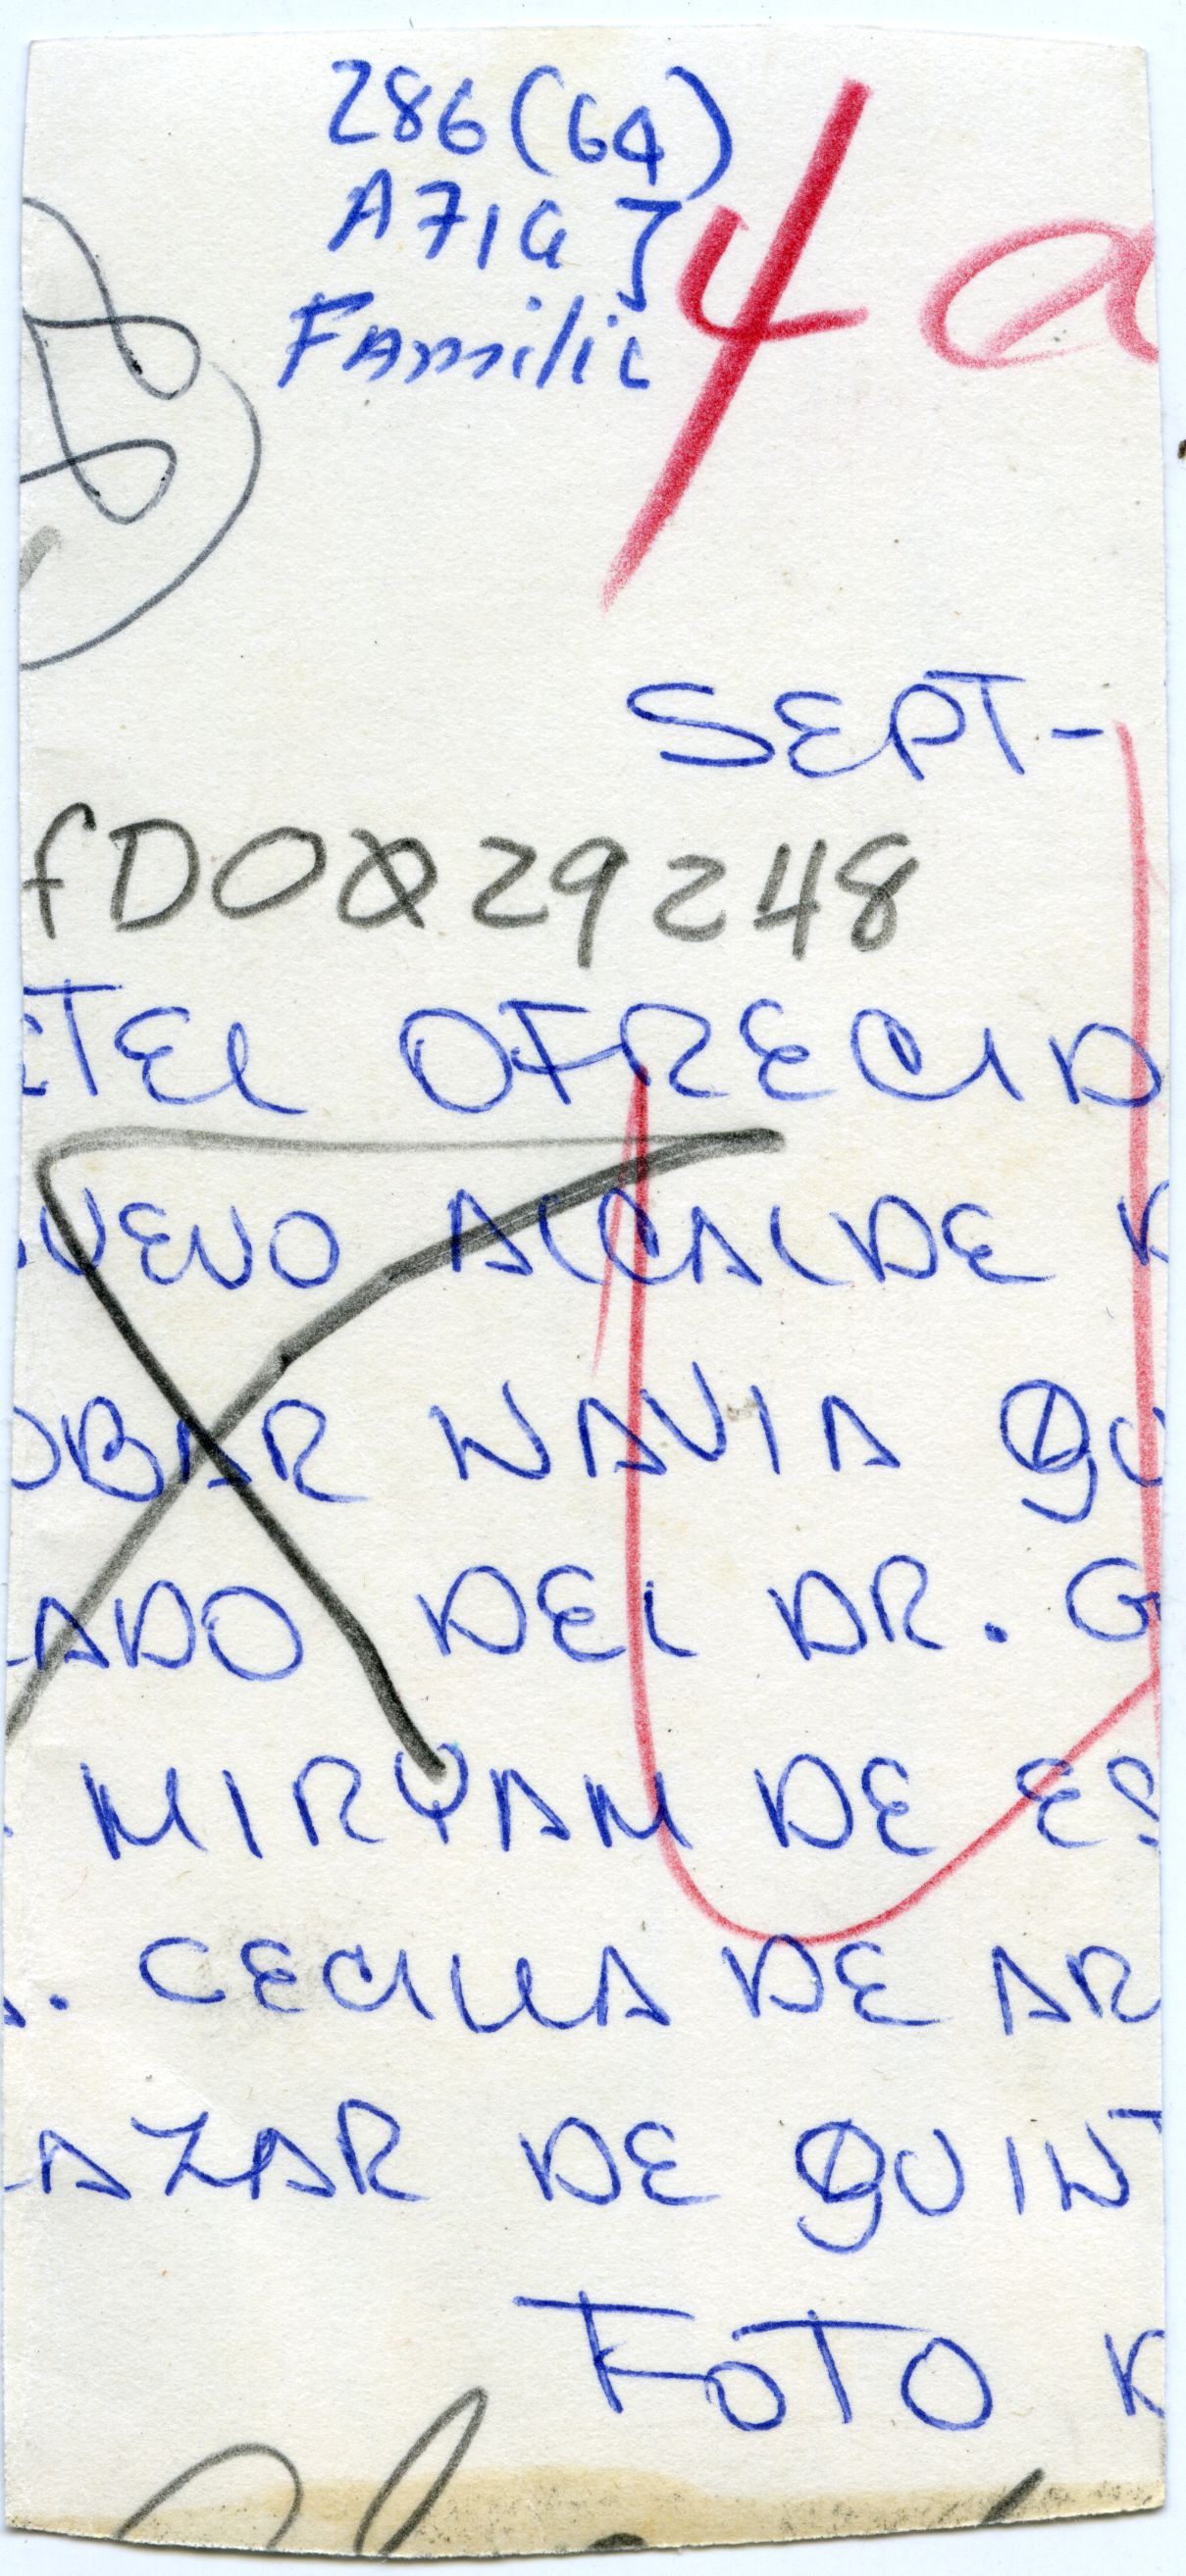 286(64)
A71G]
Familic
4 a
SEPT-
fD0029248
CTEL OFRECID
UEVO ALCALDE D
OBAR NAVIA QU
LADO DEL DR. G
MIRYAM DE ES
. CECILIA DE AR
AZAR DE QUINT
FOTO D